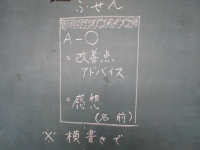 ふせん
A-○
○改善点
アドバイス
○感想
(名前)
※横書きで